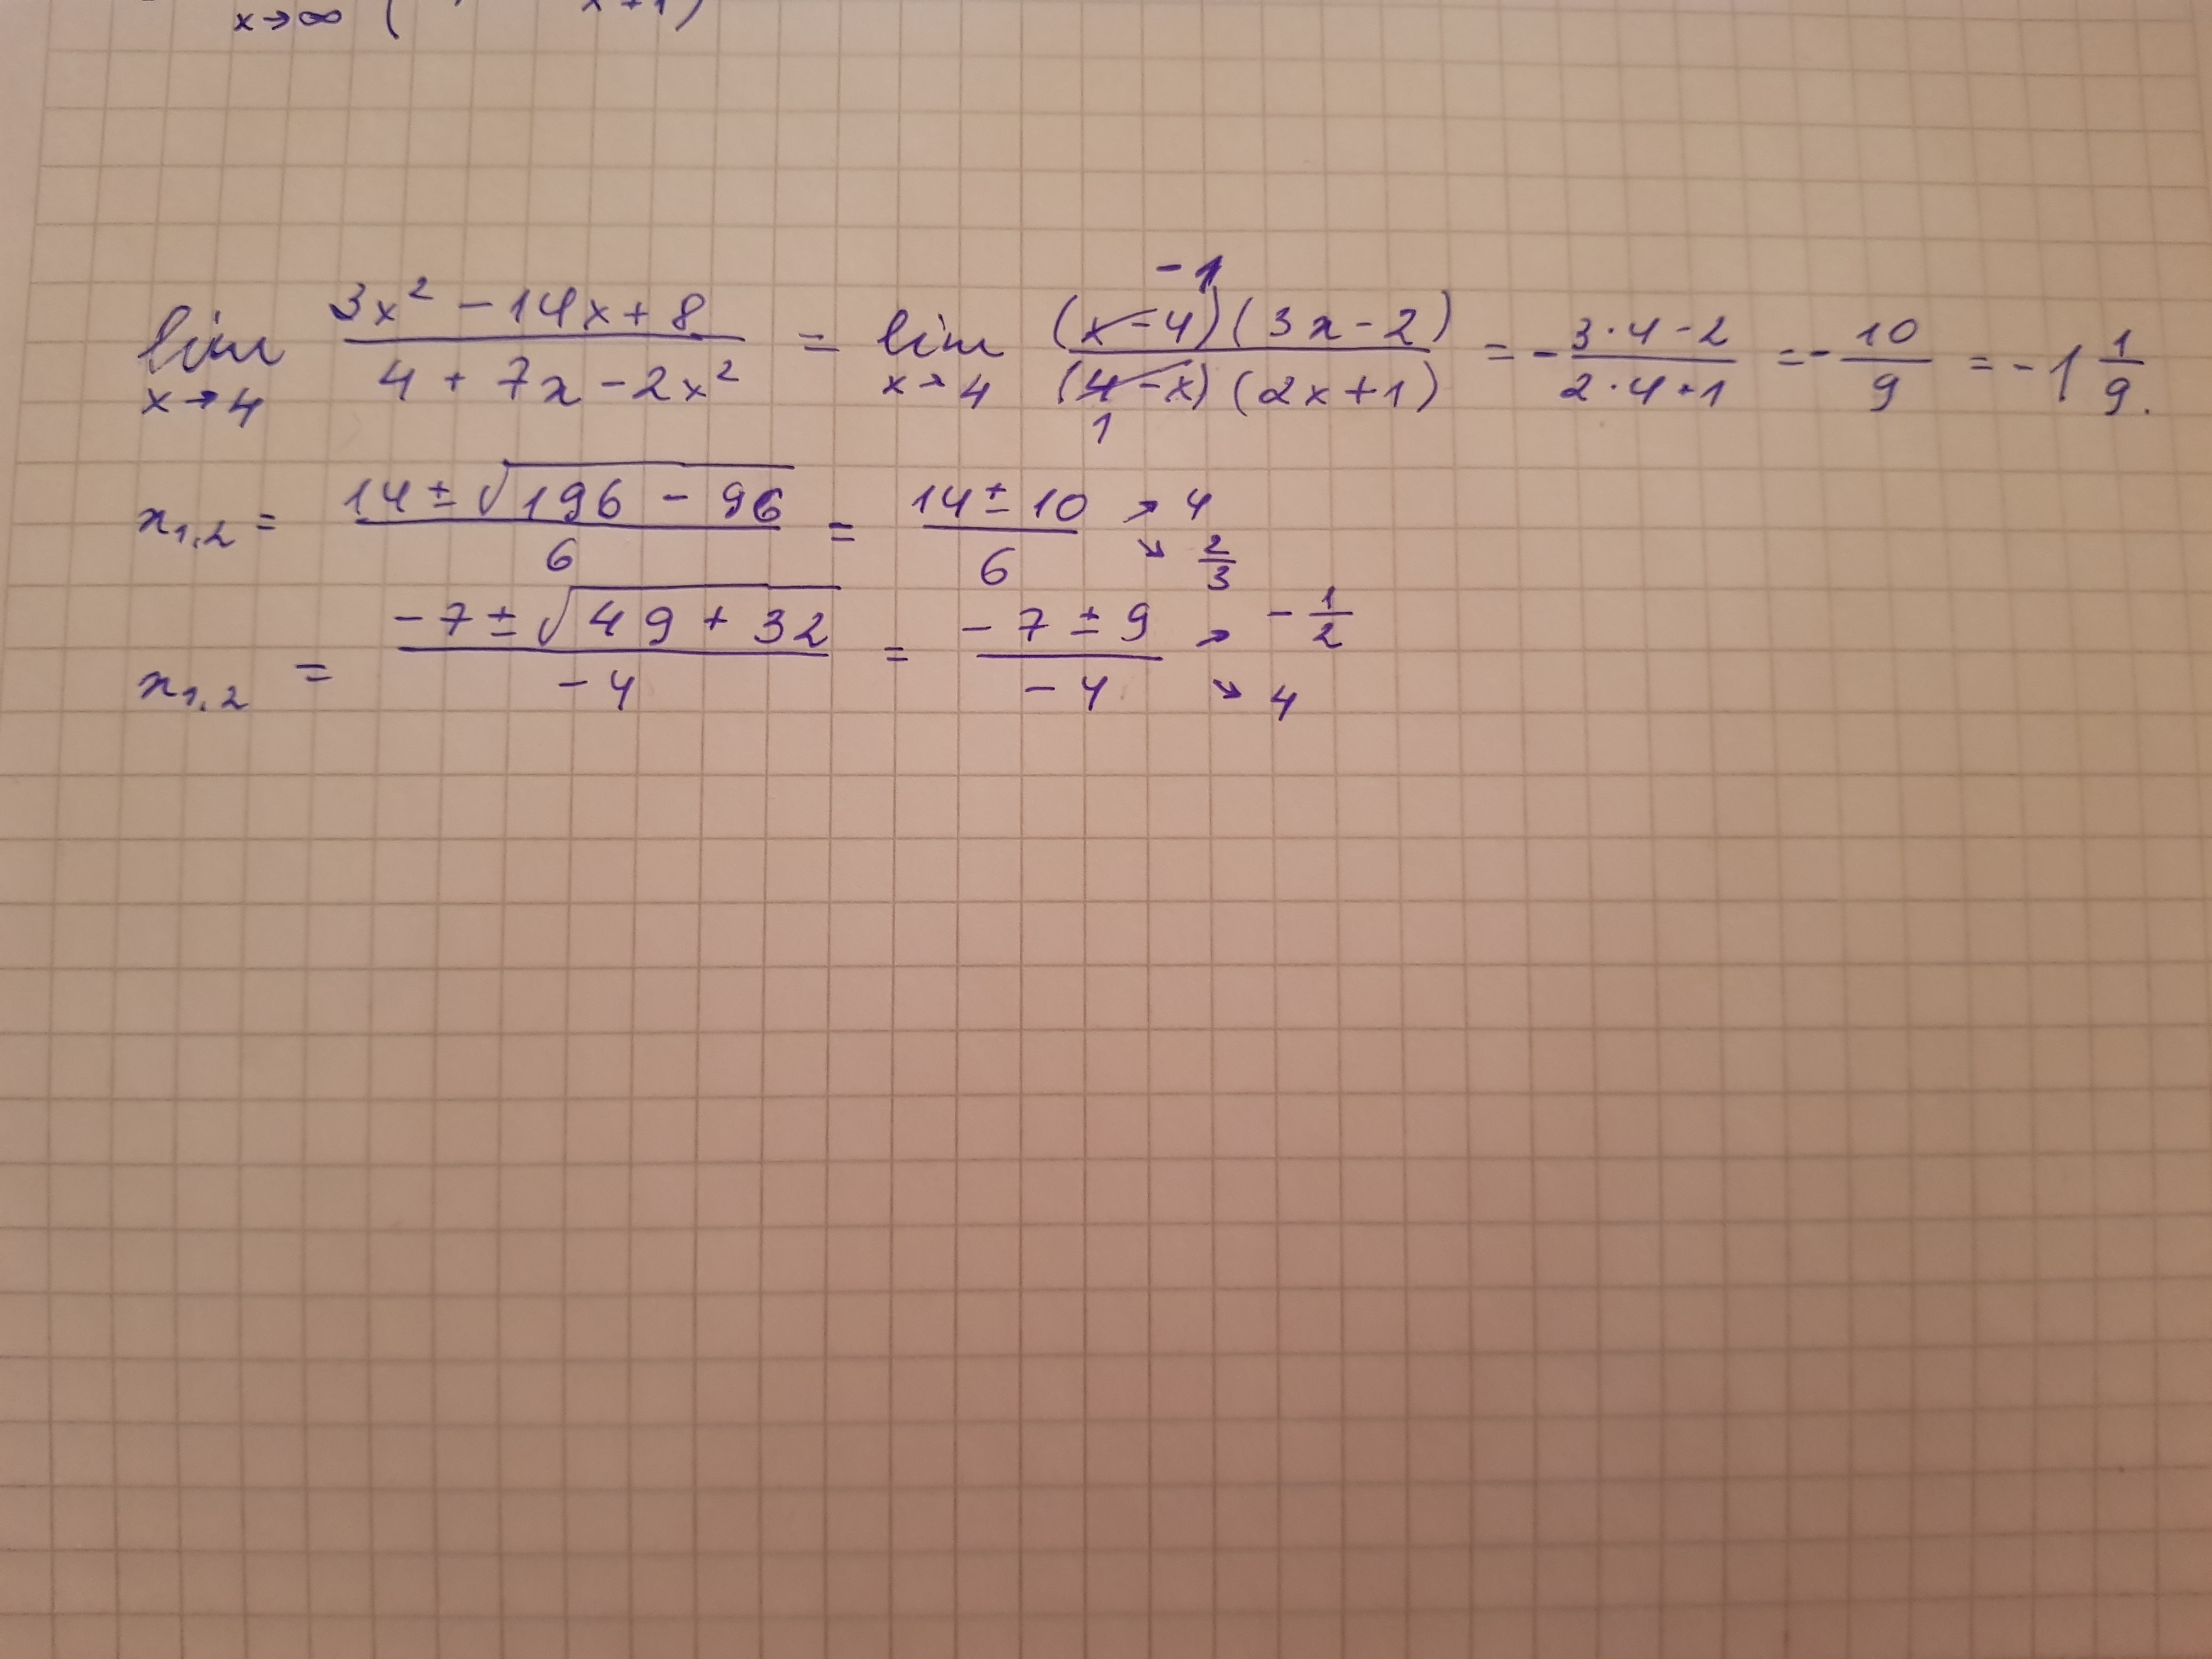 x→∞ ( x+1)
lim x→4 (3x² - 14x + 8)/(4 + 7x - 2x²) = lim x→4 ((x-4)(3x-2))/((4-x)(2x+1)) -1 1 = - (3·4-2)/(2·4+1) = - 10/9 = -1 1/9.
x₁,₂ = (14 ± √(196 - 96))/6 = (14 ± 10)/6 ↗ 4 ↘ 2/3
x₁,₂ = (-7 ± √(49 + 32))/(-4) = (-7 ± 9)/(-4) ↗ - 1/2 ↘ 4